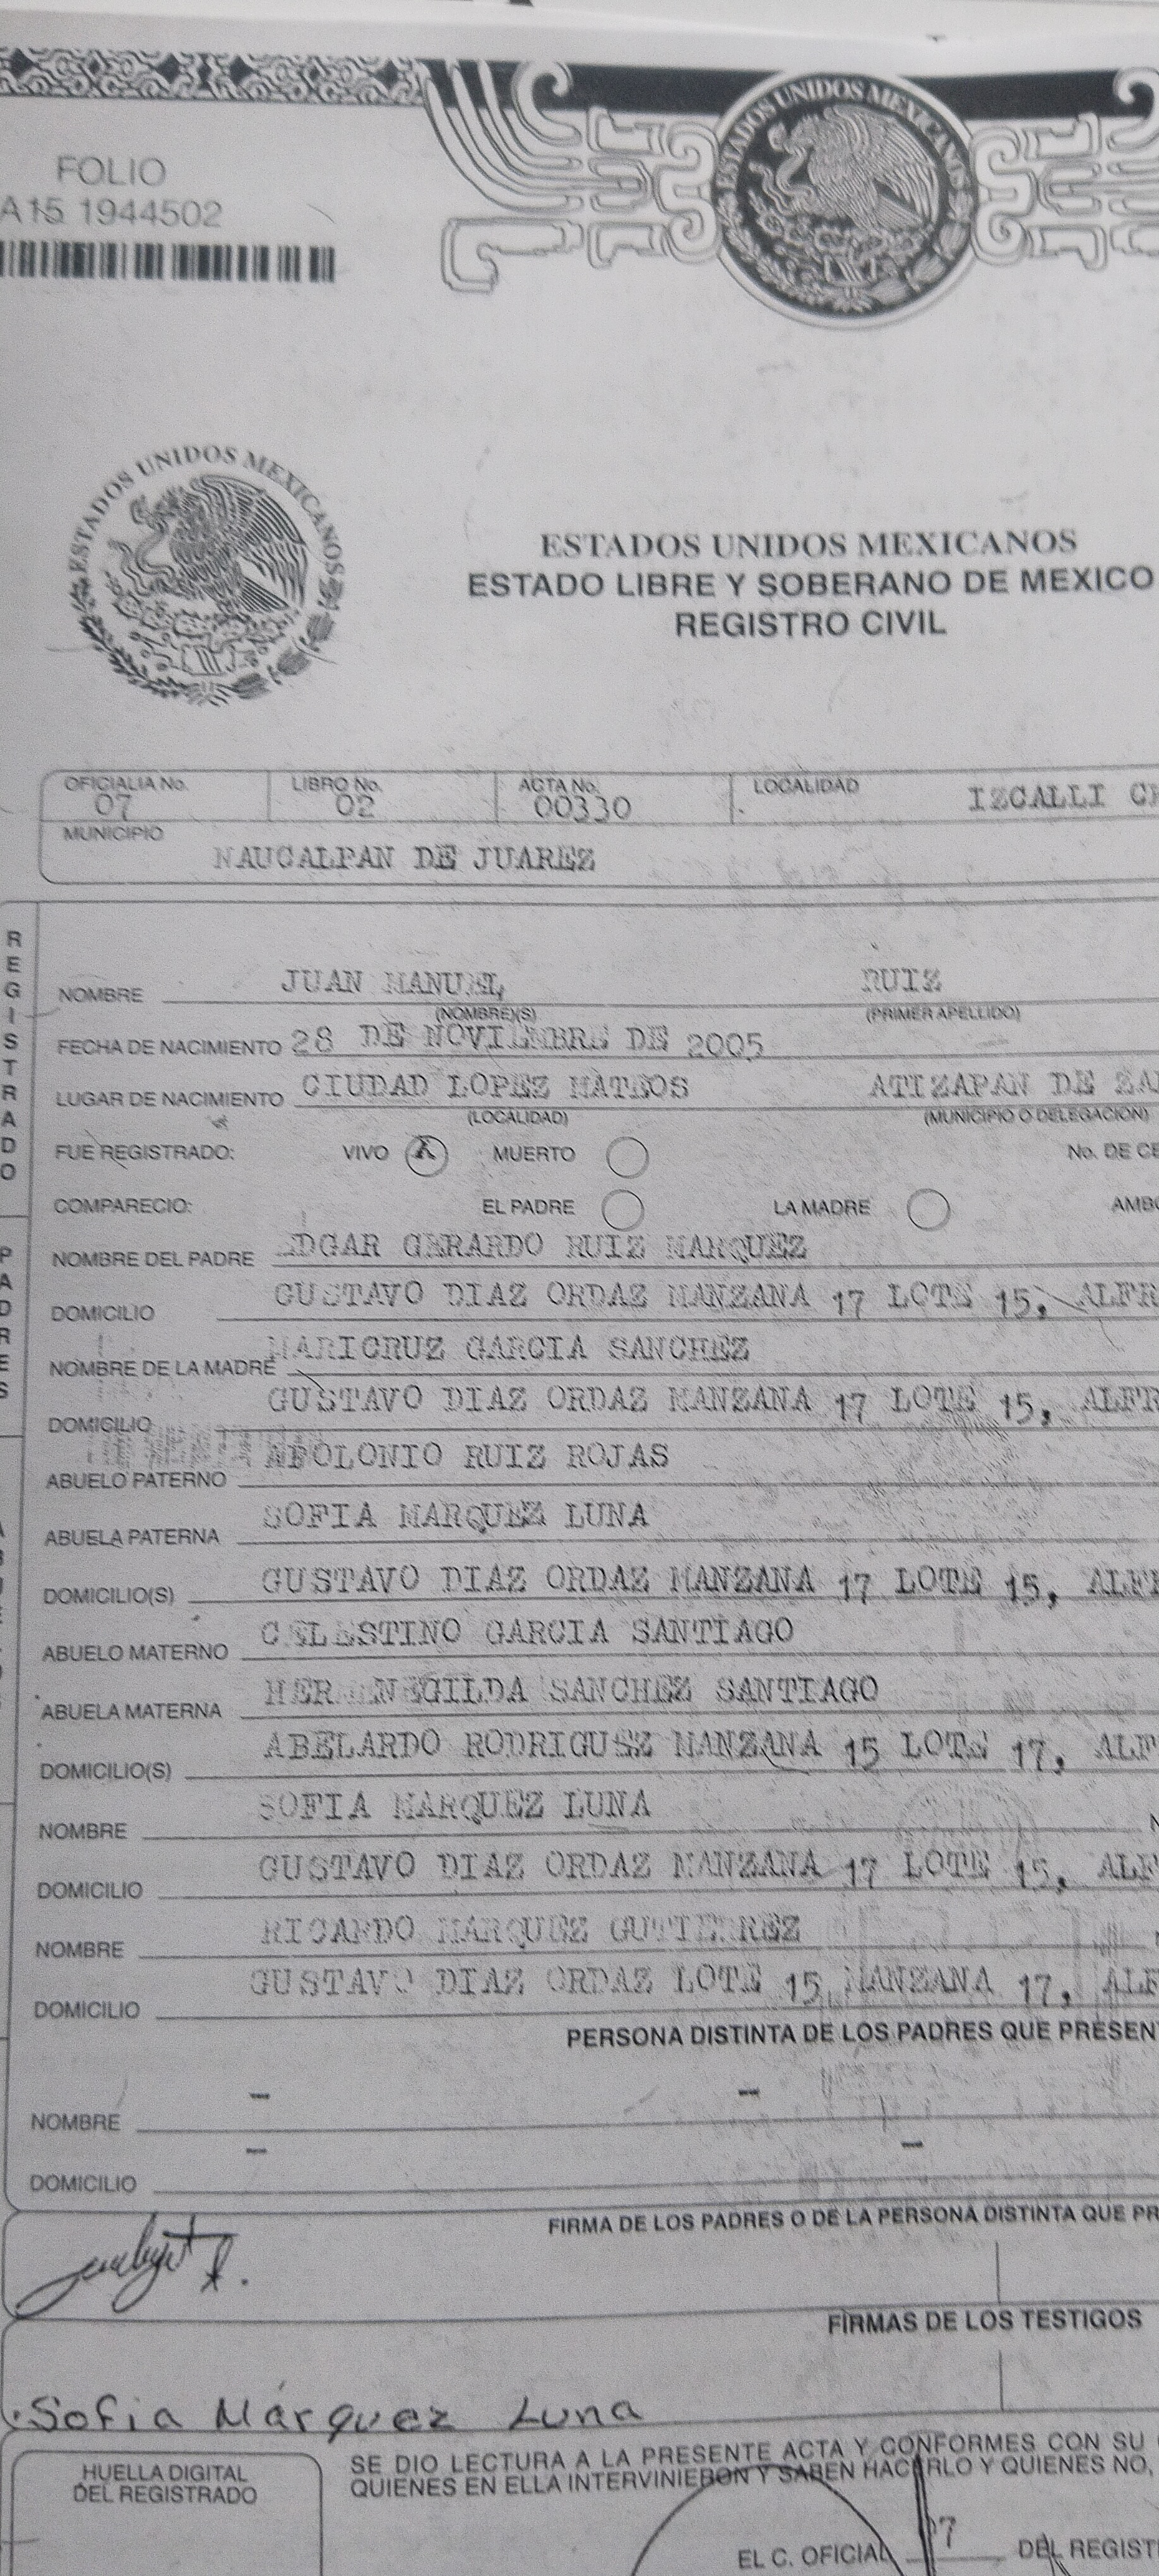 ESTADOS UNIDOS MEXICANOS
FOLIO
A15 1944502
ESTADOS UNIDOS MEXICANOS
ESTADOS UNIDOS MEXICANOS
ESTADO LIBRE Y SOBERANO DE MEXICO
REGISTRO CIVIL
OFICIALIA No. 07 LIBRO No. 02 ACTA No. 00330 LOCALIDAD IZCALLI CH
MUNICIPIO NAUCALPAN DE JUAREZ
REGISTRADO
NOMBRE JUAN MANUEL RUIZ
(NOMBRE)(S) (PRIMER APELLIDO)
FECHA DE NACIMIENTO 28 DE NOVIEMBRE DE 2005
LUGAR DE NACIMIENTO CIUDAD LOPEZ MATEOS ATIZAPAN DE ZA
(LOCALIDAD) (MUNICIPIO O DELEGACION)
FUE REGISTRADO: VIVO X MUERTO No. DE CE
COMPARECIO: EL PADRE LA MADRE AMBO
PADRES
NOMBRE DEL PADRE EDGAR GERARDO RUIZ MARQUEZ
DOMICILIO GUSTAVO DIAZ ORDAZ MANZANA 17 LOTE 15, ALFR
NOMBRE DE LA MADRE MARICRUZ GARCIA SANCHEZ
DOMICILIO GUSTAVO DIAZ ORDAZ MANZANA 17 LOTE 15, ALFR
ABUELO PATERNO APOLONIO RUIZ ROJAS
ABUELA PATERNA SOFIA MARQUEZ LUNA
DOMICILIO(S) GUSTAVO DIAZ ORDAZ MANZANA 17 LOTE 15, ALFR
ABUELO MATERNO CELESTINO GARCIA SANTIAGO
ABUELA MATERNA HERMENEGILDA SANCHEZ SANTIAGO
DOMICILIO(S) ABELARDO RODRIGUSZ MANZANA 15 LOTE 17, ALF
NOMBRE SOFIA MARQUEZ LUNA
DOMICILIO GUSTAVO DIAZ ORDAZ MANZANA 17 LOTE 15, ALF
NOMBRE RICARDO MARQUEZ GUTIERREZ
DOMICILIO GUSTAVO DIAZ ORDAZ LOTE 15, MANZANA 17, ALF
PERSONA DISTINTA DE LOS PADRES QUE PRESEN
NOMBRE - -
DOMICILIO - -
FIRMA DE LOS PADRES O DE LA PERSONA DISTINTA QUE PR
FIRMAS DE LOS TESTIGOS
Sofia Márquez Luna
HUELLA DIGITAL
DEL REGISTRADO
SE DIO LECTURA A LA PRESENTE ACTA Y CONFORMES CON SU
QUIENES EN ELLA INTERVINIERON Y SABEN HACERLO Y QUIENES NO,
EL C. OFICIAL 07 DEL REGIST